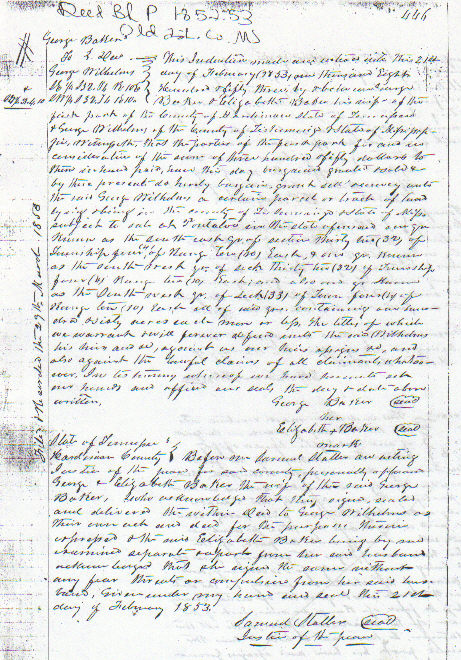 Deed Bk P 1852-53
Old Tish. Co. MS
446
George Baker
To & Deed
George Wilhelms
This Indenture made and entered into this 21st
day of February (1853) one thousand Eight
Hundred & fifty three by & between George
Baker & Elizabeth Baker his wife of the
first part of the County of Hardeman State of Tennessee
& George Wilhelms of the County of Tishomingo & State of Mississip-
pi, Witnesseth, that the parties of the first part for and in
consideration of the sum of three hundred & fifty dollars to
them in hand paid, have this day bargained granted sold &
by these presents do hereby bargain, grant sell & convey unto
the said George Wilhelms a certain parcel or tract of land
lying & being in the county of Tishomingo & State of Miss.
subject to sale at Pontotoc in the State aforesaid one qr.
Known as the South east qr. of section thirty two (32) of
Township four, of Range ten (10) East, & one qr. Known
as the South West qr. of Sect. Thirty two (32) of Township
four (4) Range ten (10) East, and also one qr. Known
as the South west qr. of Sect. (33) of Town. four (4) of
Range ten (10) East all of said qrs. containing one hun-
dred & sixty acres each more or less, the titles of which
we warrant & will forever defend unto the said Wilhelms
his heirs and assigns against us our heirs assigns &
also against the lawful claims of all claimants whatso-
ever. In testimony whereof we have hereunto set
our hands and affixed our seals the day & date above
written.
George Baker (seal)
her
Elizabeth x Baker (seal)
mark
State of Tennessee
Hardeman County
Before me Samuel Statler an acting
Justice of the peace for said county personally appeared
George & Elizabeth Baker the wife of the said George
Baker, & who acknowledged that they signed, sealed
and delivered the within deed to George Wilhelms as
their own act and deed for the purposes therein
expressed & the said Elizabeth Baker being by me
examined separate & apart from her said husband
acknowledged that she signed the same without
any fear threats or compulsion from her said hus-
band. Given under my hand and seal this 21st
day of February 1853.
Samuel Statler (seal)
Justice of the peace
Filed & Recorded the 29th March 1853